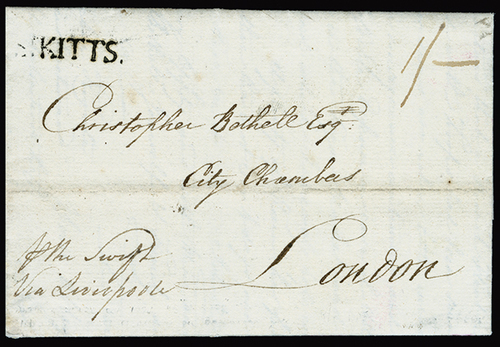 KITTS.
1/-
Christopher Bethell Esqr.
City Chambers
London
the Swift
Via Liverpoole